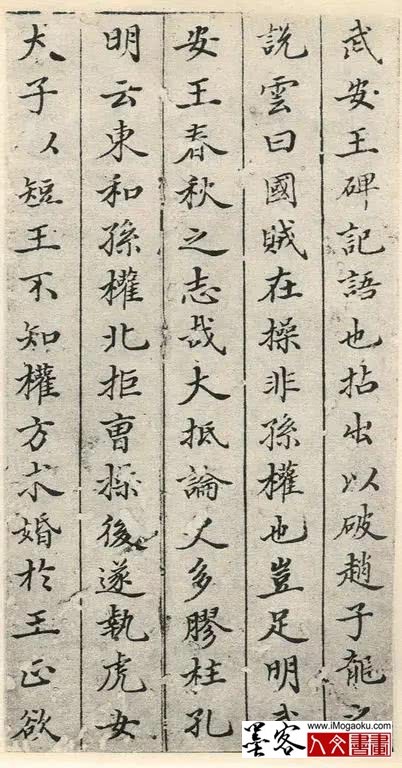 武安王碑記語也拈出以破趙子龍之
說雲曰國賊在操非孫權也豈足明武
安王春秋之志哉大抵論人多膠柱孔
明云東和孫權北拒曹操後遂執虎女
犬子以短王不知權方求婚於王正欲
墨客
www.iMogaoku.com
人文書畫